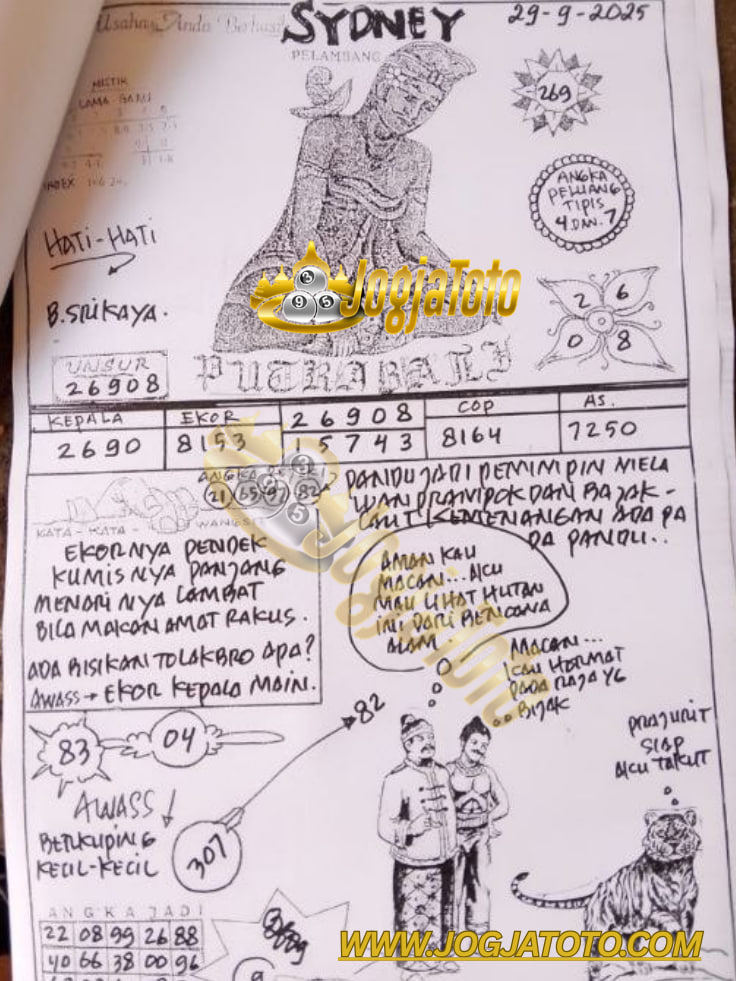 Usaha Anda Berhasil
SYDNEY
29-9-2025
PELAMBANG
MISTIK
LAMA-GANJ
INDEX
269
ANGKA
PELUANG
TIPIS
4 DAN 7
HATI-HATI
B. SRIKAYA.
JogjaToto
3
9 5
2 6
0 8
UNSUR
26908
PUTRA BALI
KEPALA EKOR 26908 COP AS.
2690 8153 15743 8164 7250
ANGKA
21 65 97 82
KATA-KATA WANGSIT
PANDU JADI PEMIMPIN MELA
WAN PRAMPOK DAN BAJAK-
LAUT KEMENANGAN ADA PA
DA PANDU..
EKORNYA PENDEK
KUMISNYA PANJANG
MENARI NYA LAMBAT
BILA MAKAN AMAT RAKUS.
ADA BISIKAN TOLAK BRO APA?
AWASS → EKOR KEPALA MAIN.
AMAN KAU
MACAN... AKU
MAU LIHAT HUTAN
INI DARI BENCANA
ALAM.
MACAN...
KAU HORMAT
PADA RAJA YG
BIJAK
83
04
82
PRAJURIT
SIAP
AKU TAKUT
AWASS
BERKUPING
KECIL-KECIL
307
ANGKA JADI
22 08 99 26 88
40 66 38 00 96
9
WWW.JOGJATOTO.COM